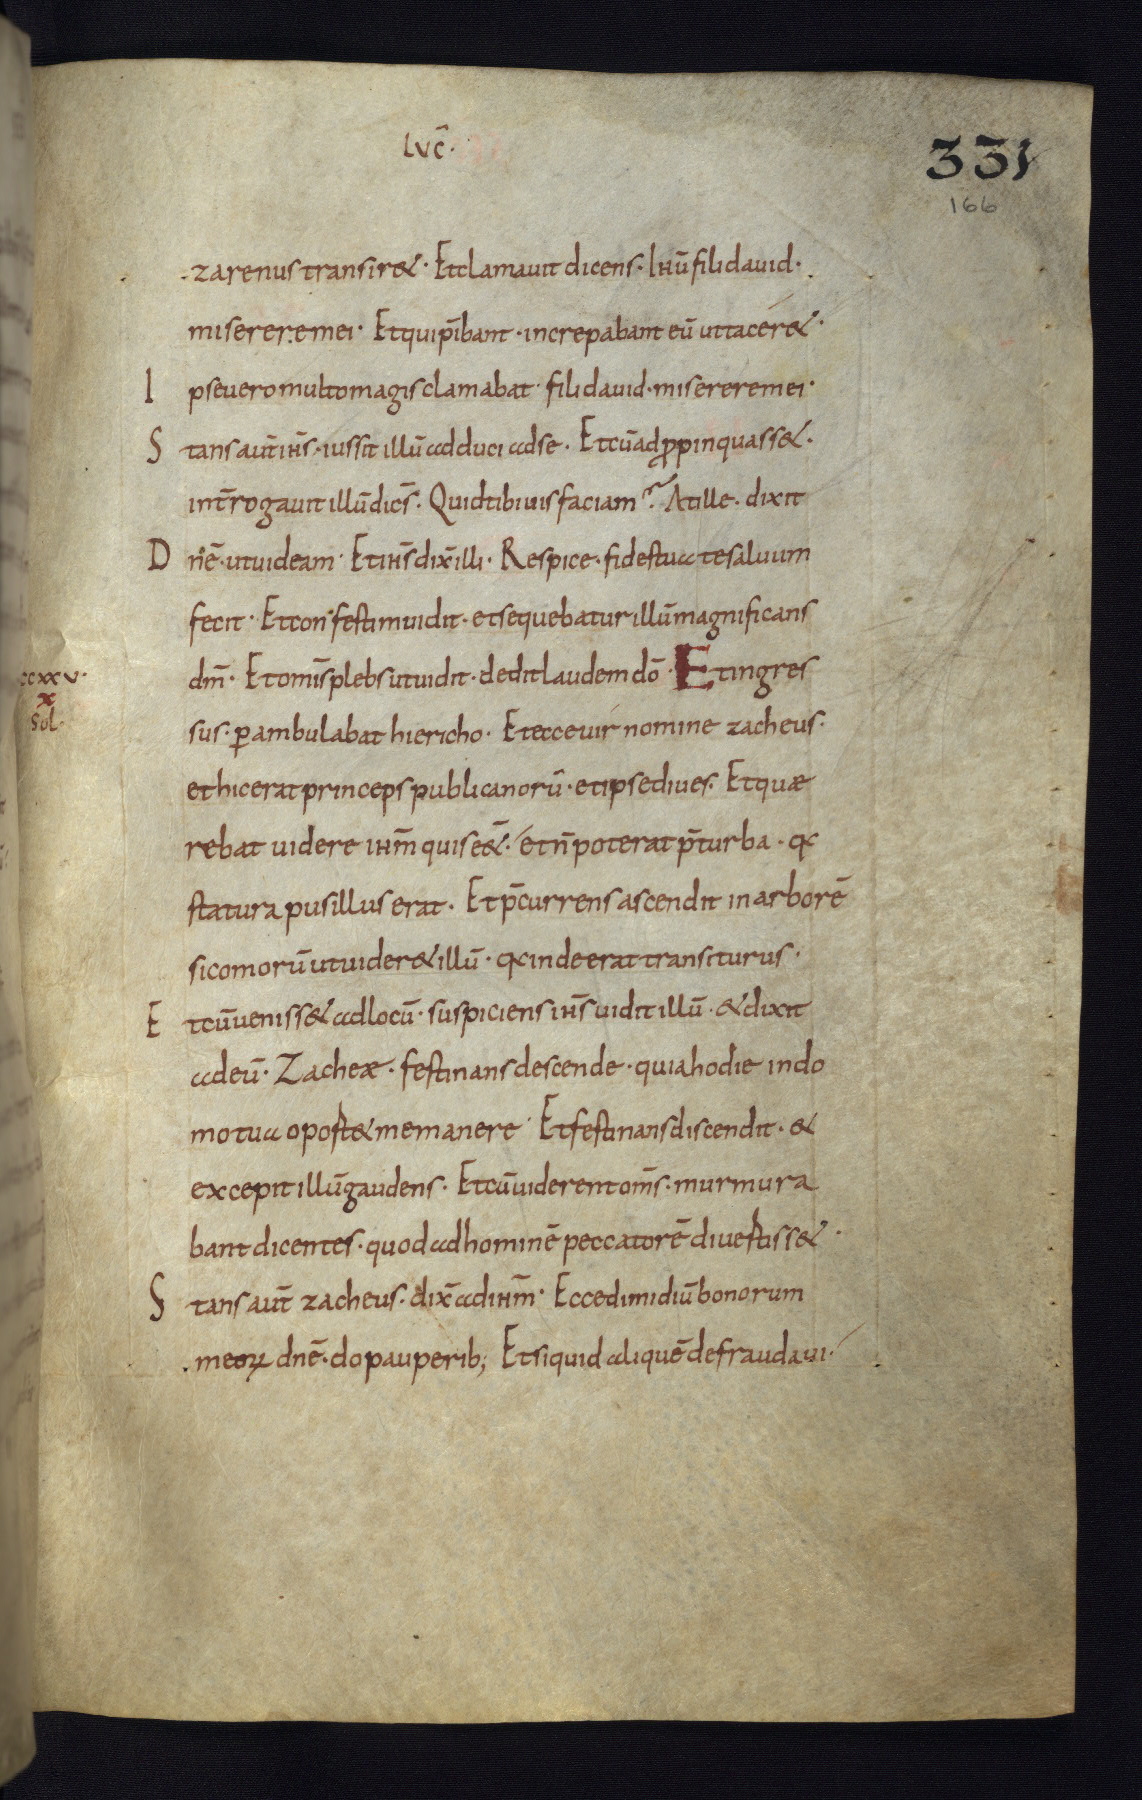 LVC̄·
331
166
zarenus transir&· Et clamauit dicens· Ihū fili dauid·
misereremei· Et qui p̄ibant· increpabant eū ut tacer&·
Ipse uero multo magis clamabat· fili dauid· miserere mei·
Stans aut̄ ihs̄· iussit illū adduci ad se· Et cū adpropinquass&·
int̄rogauit illū dic̄s· Quid tibi uis faciam? At ille· dixit
Dn̄e· ut uideam· Et ihs̄ dix̄ illi· Respice· fides tua te saluum
fecit· Et confestim uidit· et sequebatur illū magnificans
dm̄· Et om̄is plebs ut uidit· dedit laudem dō· Et ingres
sus· ꝑambulabat hiericho· Et ecce uir nomine zacheus·
et hic erat princeps publicanorū· et ipse diues· Et quæ
rebat uidere ihm̄ quis ēe&· et n̄ poterat p̄ turba· q̄
statura pusillus erat· Et p̄currens ascendit in arborē
sicomorū ut uider& illū· q̄ inde erat transiturus·
Et cū ueniss& ad locū· suspiciens ihs̄ uidit illū· & dixit
ad eū· Zacheæ· festinans descende· quia hodie in do
mo tua oport& me manere· Et festinans discendit· &
excepit illū gaudens· Et cū uiderent om̄s· murmura
bant dicentes· quod ad hominē peccatorē diuertiss&·
Stans aut̄ zacheus· dix̄ ad ihm̄· Ecce dimidiū bonorum
meoꝝ dn̄e· do pauperib; Et si quid aliquē defraudaui·
ccxxv·
x
Sol·